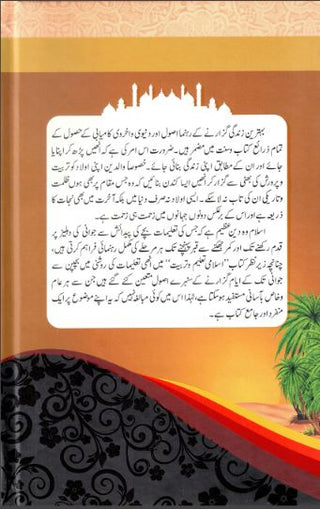 بہترین زندگی گزارنے کے رہنما اصول اور دنیوی واخروی کامیابی کے حصول کے
تمام ذرائع کتاب وسنت میں مضمر ہیں۔ ضرورت اس امر کی ہے کہ انھیں پڑھ کر اپنایا
جائے اور ان کے مطابق اپنی زندگی بنائی جائے۔ خصوصاً والدین اپنی اولاد کو تربیت
و پرورش کی بھٹی سے گزار کر انھیں ایسا کندن بنائیں کہ وہ جس مقام پر بھی ہوں ظلمت
وتاریکی ان کی تاب نہ لا سکے۔ ایسی اولاد نہ صرف دنیا میں بلکہ آخرت میں بھی نجات کا
ذریعہ ہے اور اس کے برعکس دونوں جہانوں میں زحمت ہی زحمت ہے۔
اسلام وہ دین عظیم ہے کہ جس کی تعلیمات بچے کی پیدائش سے جوانی کی دہلیز پر
قدم رکھنے تک اور کمر جھکنے سے قبر پہنچنے تک ہر مرحلے کی مکمل رہنمائی فراہم کرتی ہیں،
چنانچہ زیر نظر کتاب "اسلامی تعلیم و تربیت" میں انھی تعلیمات کی روشنی میں بچپن سے
جوانی تک کے ایام گزارنے کے سنہرے اصول متعین کئے گئے ہیں جن سے ہر عام
وخاص بآسانی مستفید ہو سکتا ہے، لہٰذا اس میں کوئی مبالغہ نہیں کہ یہ اپنے موضوع پر ایک
منفرد اور جامع کتاب ہے۔